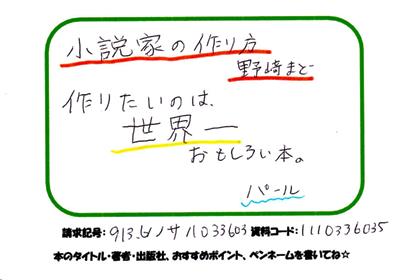 小説家の作り方
野崎まど
作りたいのは、
世界一
おもしろい本。
パール
請求記号: 913.ヒノサ/1033603 資料コード: 1110336035
本のタイトル・著者・出版社、おすすめポイント、ペンネームを書いてね☆